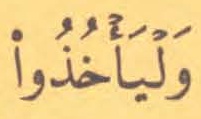 وَلْيَأْخُذُوا۟